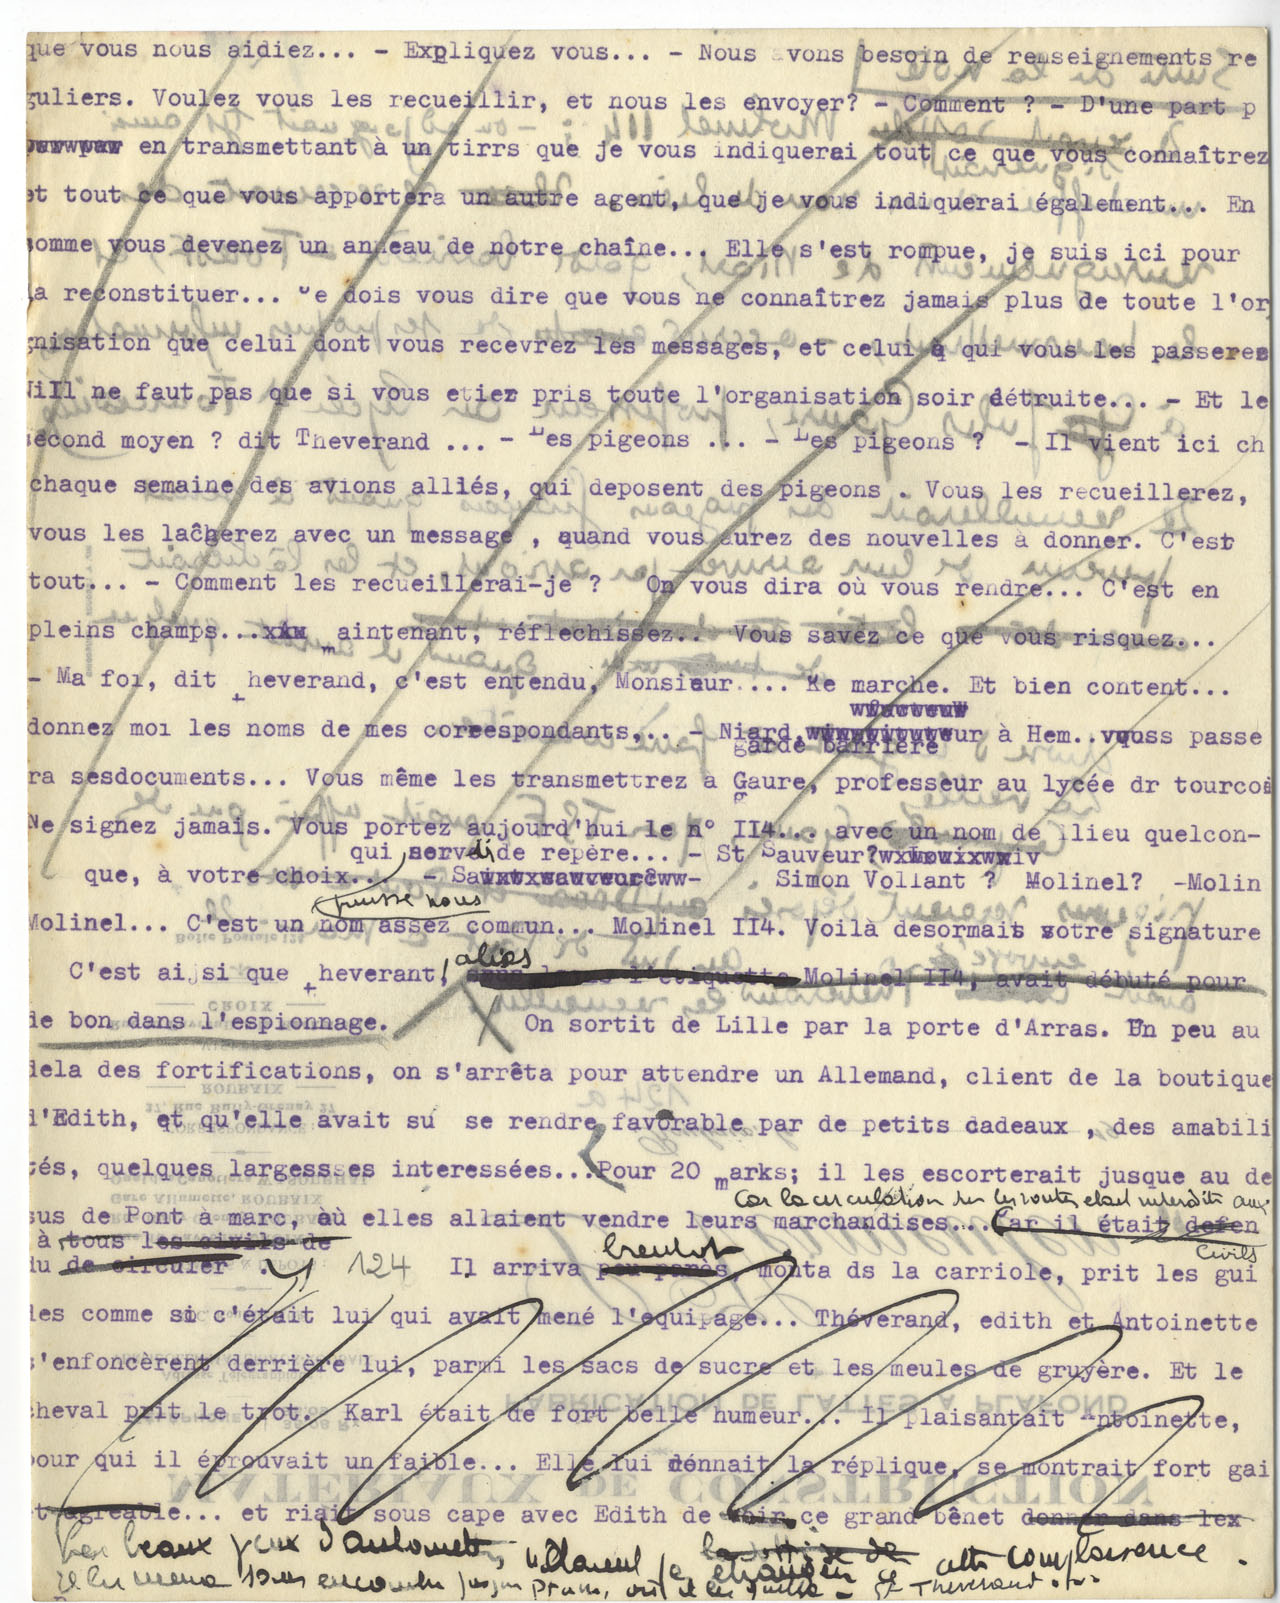 que vous nous aidiez... - Expliquez vous... - Nous avons besoin de renseignements re
guliers. Voulez vous les recueillir, et nous les envoyer? - Comment ? - D'une part p
en transmettant à un tirrs que je vous indiquerai tout ce que vous connaîtrez
et tout ce que vous apportera un autre agent, que je vous indiquerai également... En
somme vous devenez un anneau de notre chaîne... Elle s'est rompue, je suis ici pour
la reconstituer... Je dois vous dire que vous ne connaîtrez jamais plus de toute l'or
gnisation que celui dont vous recevrez les messages, et celui à qui vous les passerez
NiIl ne faut pas que si vous etiez pris toute l'organisation soir détruite... - Et le
second moyen ? dit Theverand ... - Les pigeons ... - Les pigeons ? - Il vient ici ch
chaque semaine des avions alliés, qui deposent des pigeons . Vous les recueillerez,
vous les lacherez avec un message , quand vous aurez des nouvelles à donner. C'est
tout... - Comment les recueillerai-je ? On vous dira où vous rendre... C'est en
pleins champs...xxx maintenant, réflechissez.. Vous savez ce que vous risquez...
- Ma foi, dit Theverand, c'est entendu, Monsieur.... Je marche. Et bien content...
donnez moi les noms de mes correspondants,.. - Niard, à Hem.. vous passe
garde barrière
ra sesdocuments... Vous même les transmettrez à Gaure, professeur au lycée dr tourcoi
Ne signez jamais. Vous portez aujourd'hui le n° II4... avec un nom de lieu quelcon-
qui nous serve de repère... - St Sauveur?
que, à votre choix... - Simon Vollant ? Molinel? -Molin
puisse nous
Molinel... C'est un nom assez commun... Molinel II4. Voilà desormais votre signature
alias
C'est aijsi que Theverant, Molinel II4, avait débuté pour
de bon dans l'espionnage. On sortit de Lille par la porte d'Arras. Un peu au
dela des fortifications, on s'arrêta pour attendre un Allemand, client de la boutique
d'Edith, et qu'elle avait su se rendre favorable par de petits cadeaux , des amabili
tés, quelques largessses interessées... Pour 20 marks; il les escorterait jusque au de
car la circulation sur les routes etait interdite aux
sus de Pont à marc, où elles allaient vendre leurs marchandises.... Car il était defen
civils
à tous les civils de
du de circuler .
bientot
124 Il arriva peu parès, monta ds la carriole, prit les gui
des comme si c'était lui qui avait mené l'equipage... Théverand, edith et Antoinette
s'enfoncèrent derrière lui, parmi les sacs de sucre et les meules de gruyère. Et le
cheval prit le trot. Karl était de fort belle humeur... Il plaisantait Antoinette,
pour qui il éprouvait un faible... Elle lui donnait la réplique, se montrait fort gai
et agreable... et riait sous cape avec Edith de voir ce grand bênet donner dans lex
beaux yeux d'antoinette, cette complaisance.
sans encombre
Theverand...